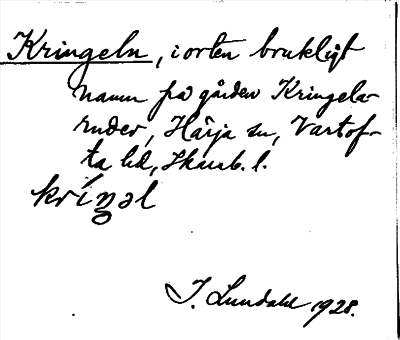 Kringeln, i orten brukligt
namn på gården Kringela-
ruder, Härja sn, Vartof-
ta hd, Skarab. l.
kríŋəl
I. Lundahl 1928.